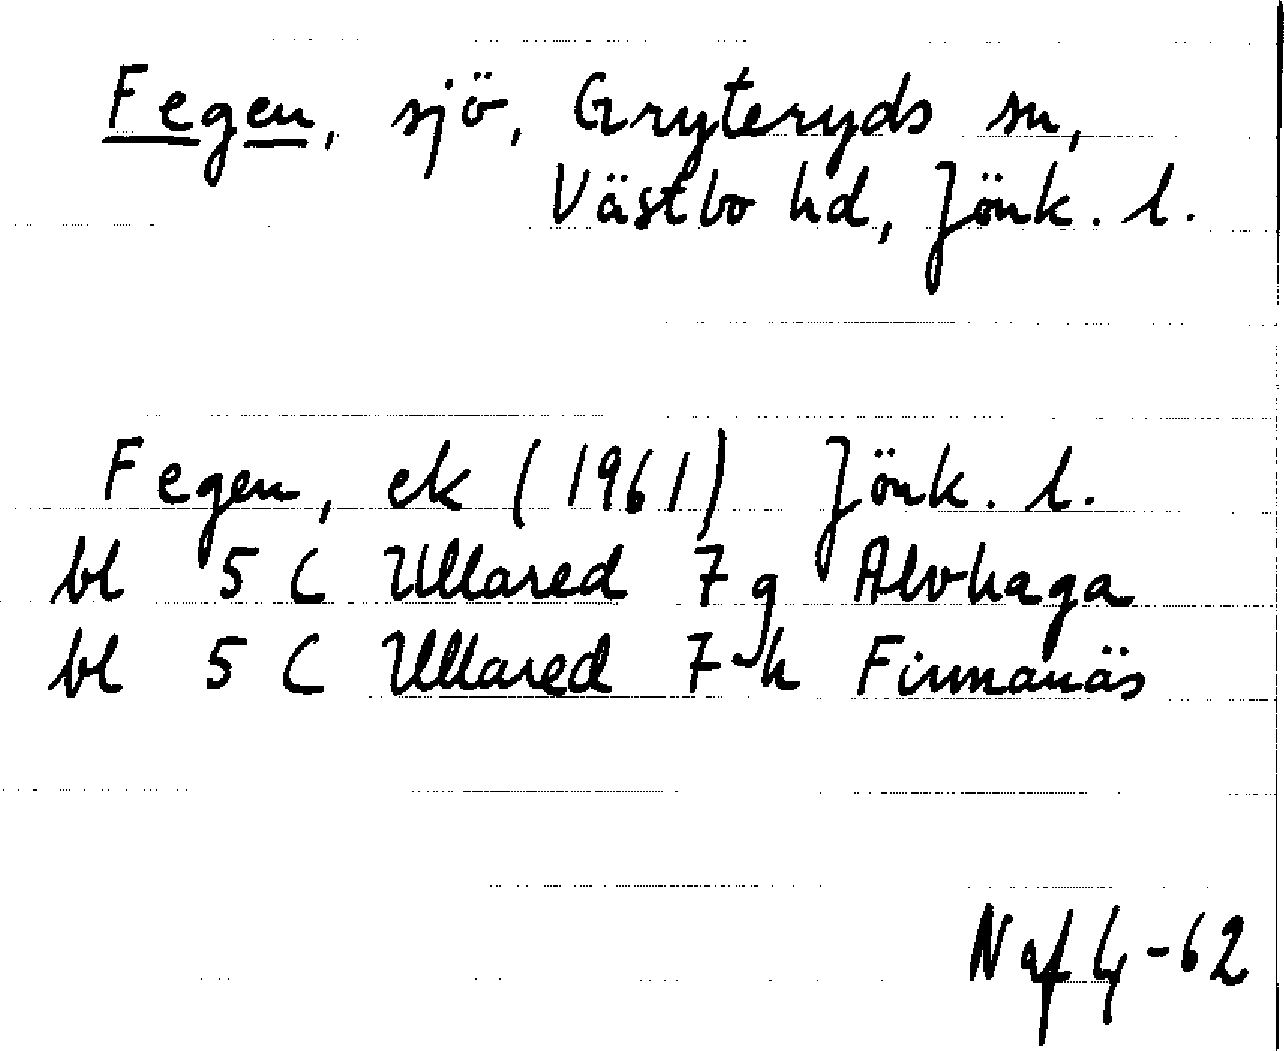 Fegen, sjö, Gryteryds sn,
Västbo hd, Jönk. l.
Fegen, ek (1961) Jönk. l.
bl 5 C Ullared 7 g Alvhaga
bl 5 C Ullared 7 h Finnanäs
Naf 4-62